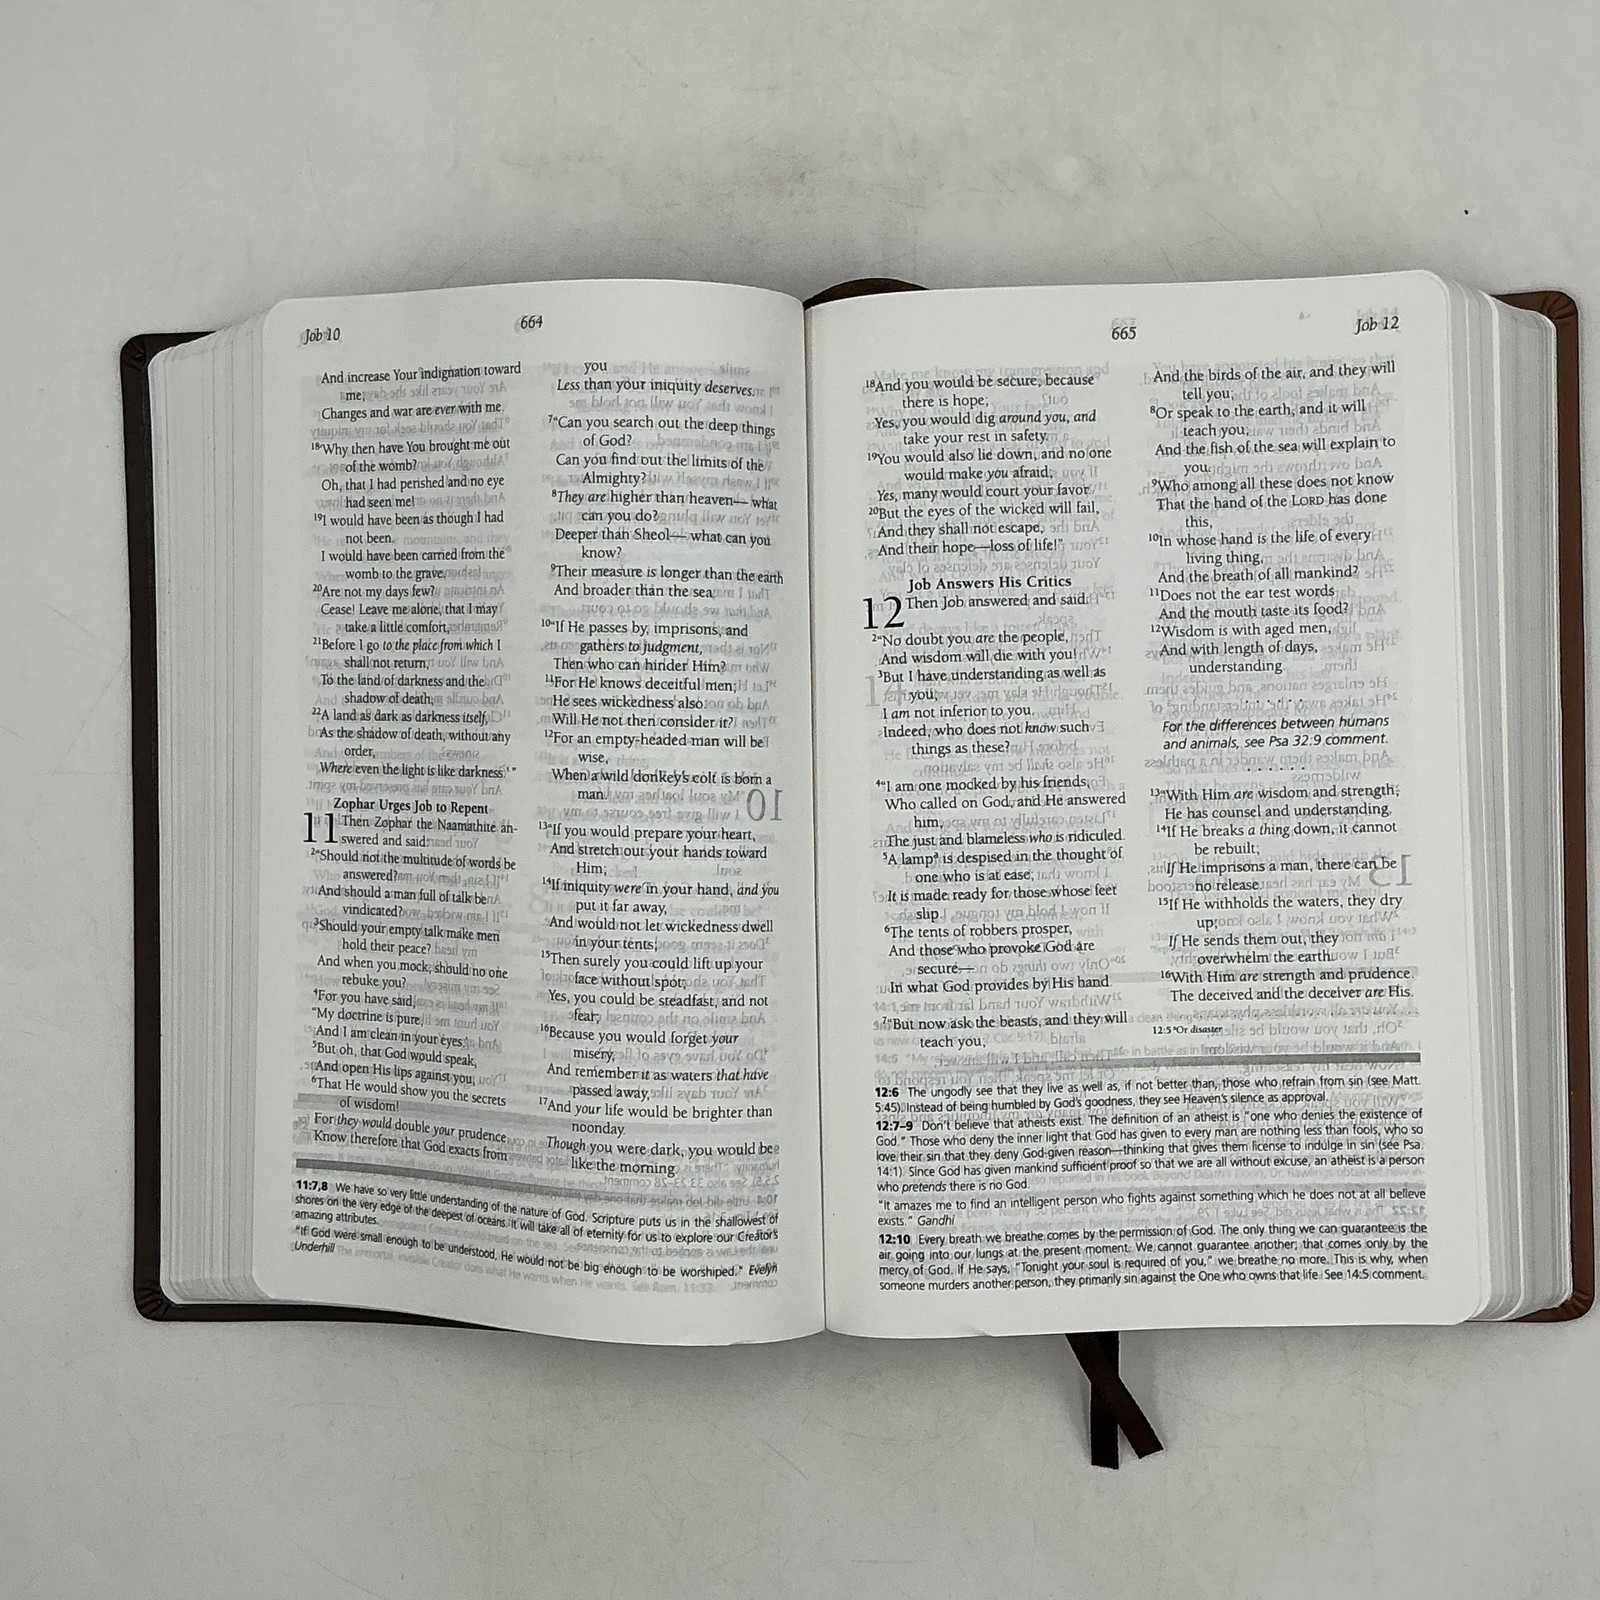 Job 10
664
And increase Your indignation toward
me;
Changes and war are ever with me.
18“Why then have You brought me out
of the womb?
Oh, that I had perished and no eye
had seen me!
19I would have been as though I had
not been.
I would have been carried from the
womb to the grave.
20Are not my days few?
Cease! Leave me alone, that I may
take a little comfort,
21Before I go to the place from which I
shall not return,
To the land of darkness and the
shadow of death,
22A land as dark as darkness itself,
As the shadow of death, without any
order,
Where even the light is like darkness.’ ”
Zophar Urges Job to Repent
11 Then Zophar the Naamathite an-
swered and said:
2“Should not the multitude of words be
answered?
And should a man full of talk be
vindicated?
3Should your empty talk make men
hold their peace?
And when you mock, should no one
rebuke you?
4For you have said,
“My doctrine is pure,
And I am clean in your eyes.’
5But oh, that God would speak,
And open His lips against you,
6That He would show you the secrets
of wisdom!
For they would double your prudence.
Know therefore that God exacts from
you
Less than your iniquity deserves.
7“Can you search out the deep things
of God?
Can you find out the limits of the
Almighty?
8They are higher than heaven— what
can you do?
Deeper than Sheol— what can you
know?
9Their measure is longer than the earth
And broader than the sea.
10“If He passes by, imprisons, and
gathers to judgment,
Then who can hinder Him?
11For He knows deceitful men;
He sees wickedness also.
Will He not then consider it?
12For an empty-headed man will be
wise,
When a wild donkey’s colt is born a
man.
13“If you would prepare your heart,
And stretch out your hands toward
Him;
14If iniquity were in your hand, and you
put it far away,
And would not let wickedness dwell
in your tents;
15Then surely you could lift up your
face without spot;
Yes, you could be steadfast, and not
fear;
16Because you would forget your
misery,
And remember it as waters that have
passed away,
17And your life would be brighter than
noonday.
Though you were dark, you would be
like the morning.
11:7,8 We have so very little understanding of the nature of God. Scripture puts us in the shallowest of
shores on the very edge of the deepest of oceans. It will take all of eternity for us to explore our Creator’s
amazing attributes.
“If God were small enough to be understood, He would not be big enough to be worshiped.” Evelyn
Underhill
665
Job 12
18And you would be secure, because
there is hope;
Yes, you would dig around you, and
take your rest in safety.
19You would also lie down, and no one
would make you afraid;
Yes, many would court your favor.
20But the eyes of the wicked will fail,
And they shall not escape,
And their hope—loss of life!”
Job Answers His Critics
12 Then Job answered and said:
2“No doubt you are the people,
And wisdom will die with you!
3But I have understanding as well as
you;
I am not inferior to you.
Indeed, who does not know such
things as these?
4“I am one mocked by his friends,
Who called on God, and He answered
him,
The just and blameless who is ridiculed.
5A lampa is despised in the thought of
one who is at ease;
It is made ready for those whose feet
slip.
6The tents of robbers prosper,
And those who provoke God are
secure—
In what God provides by His hand.
7“But now ask the beasts, and they will
teach you;
And the birds of the air, and they will
tell you;
8Or speak to the earth, and it will
teach you;
And the fish of the sea will explain to
you.
9Who among all these does not know
That the hand of the LORD has done
this,
10In whose hand is the life of every
living thing,
And the breath of all mankind?
11Does not the ear test words
And the mouth taste its food?
12Wisdom is with aged men,
And with length of days,
understanding.
For the differences between humans
and animals, see Psa 32:9 comment.
. . . . . .
13“With Him are wisdom and strength,
He has counsel and understanding.
14If He breaks a thing down, it cannot
be rebuilt;
If He imprisons a man, there can be
no release.
15If He withholds the waters, they dry
up;
If He sends them out, they
overwhelm the earth.
16With Him are strength and prudence.
The deceived and the deceiver are His.
12:5 aOr disaster
12:6 The ungodly see that they live as well as, if not better than, those who refrain from sin (see Matt.
5:45). Instead of being humbled by God’s goodness, they see Heaven’s silence as approval.
12:7–9 Don’t believe that atheists exist. The definition of an atheist is “one who denies the existence of
God.” Those who deny the inner light that God has given to every man are nothing less than fools, who so
love their sin that they deny God-given reason—thinking that gives them license to indulge in sin (see Psa.
14:1). Since God has given mankind sufficient proof so that we are all without excuse, an atheist is a person
who pretends there is no God.
“It amazes me to find an intelligent person who fights against something which he does not at all believe
exists.” Gandhi
12:10 Every breath we breathe comes by the permission of God. The only thing we can guarantee is the
air going into our lungs at the present moment. We cannot guarantee another; that comes only by the
mercy of God. If He says, “Tonight your soul is required of you,” we breathe no more. This is why, when
someone murders another person, they primarily sin against the One who owns that life. See 14:5 comment.